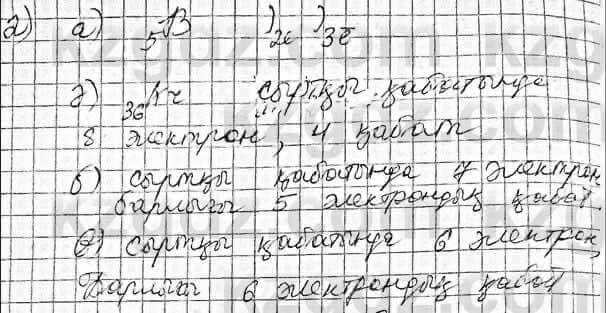 2) а) ₅B )₂ₑ )₃ₑ̄
ә) ₃₆Kr сыртқы қабатында
8 электрон, 4 қабат
б) сыртқы қабатында 7 электрон,
барлығы 5 электрондық қабат
в) сыртқы қабатында 6 электрон,
Барлығы 6 электрондық қабат